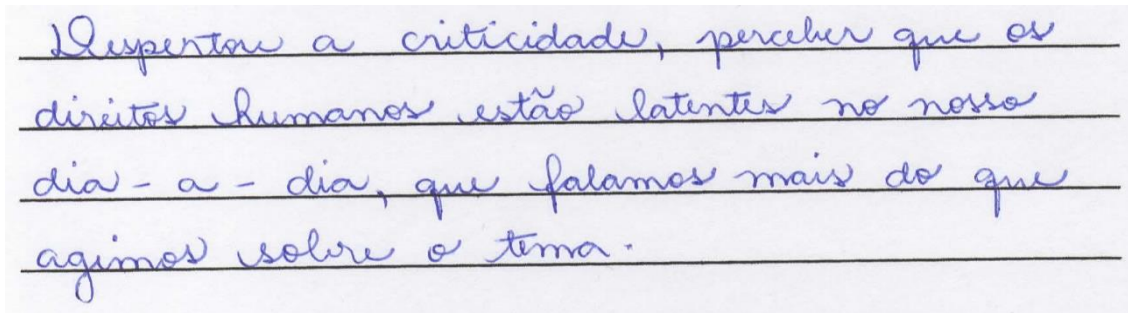 Despertou a criticidade, perceber que os
direitos humanos estão latentes no nosso
dia - a - dia, que falamos mais do que
agimos sobre o tema.